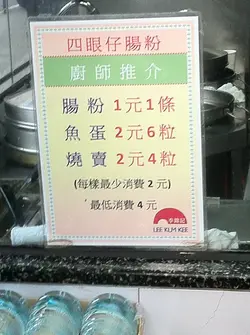 四眼仔腸粉
廚師推介
腸粉1元1條
魚蛋2元6粒
燒賣2元4粒
(每樣最少消費2元)
最低消費4元
李錦記
LEE KUM KEE